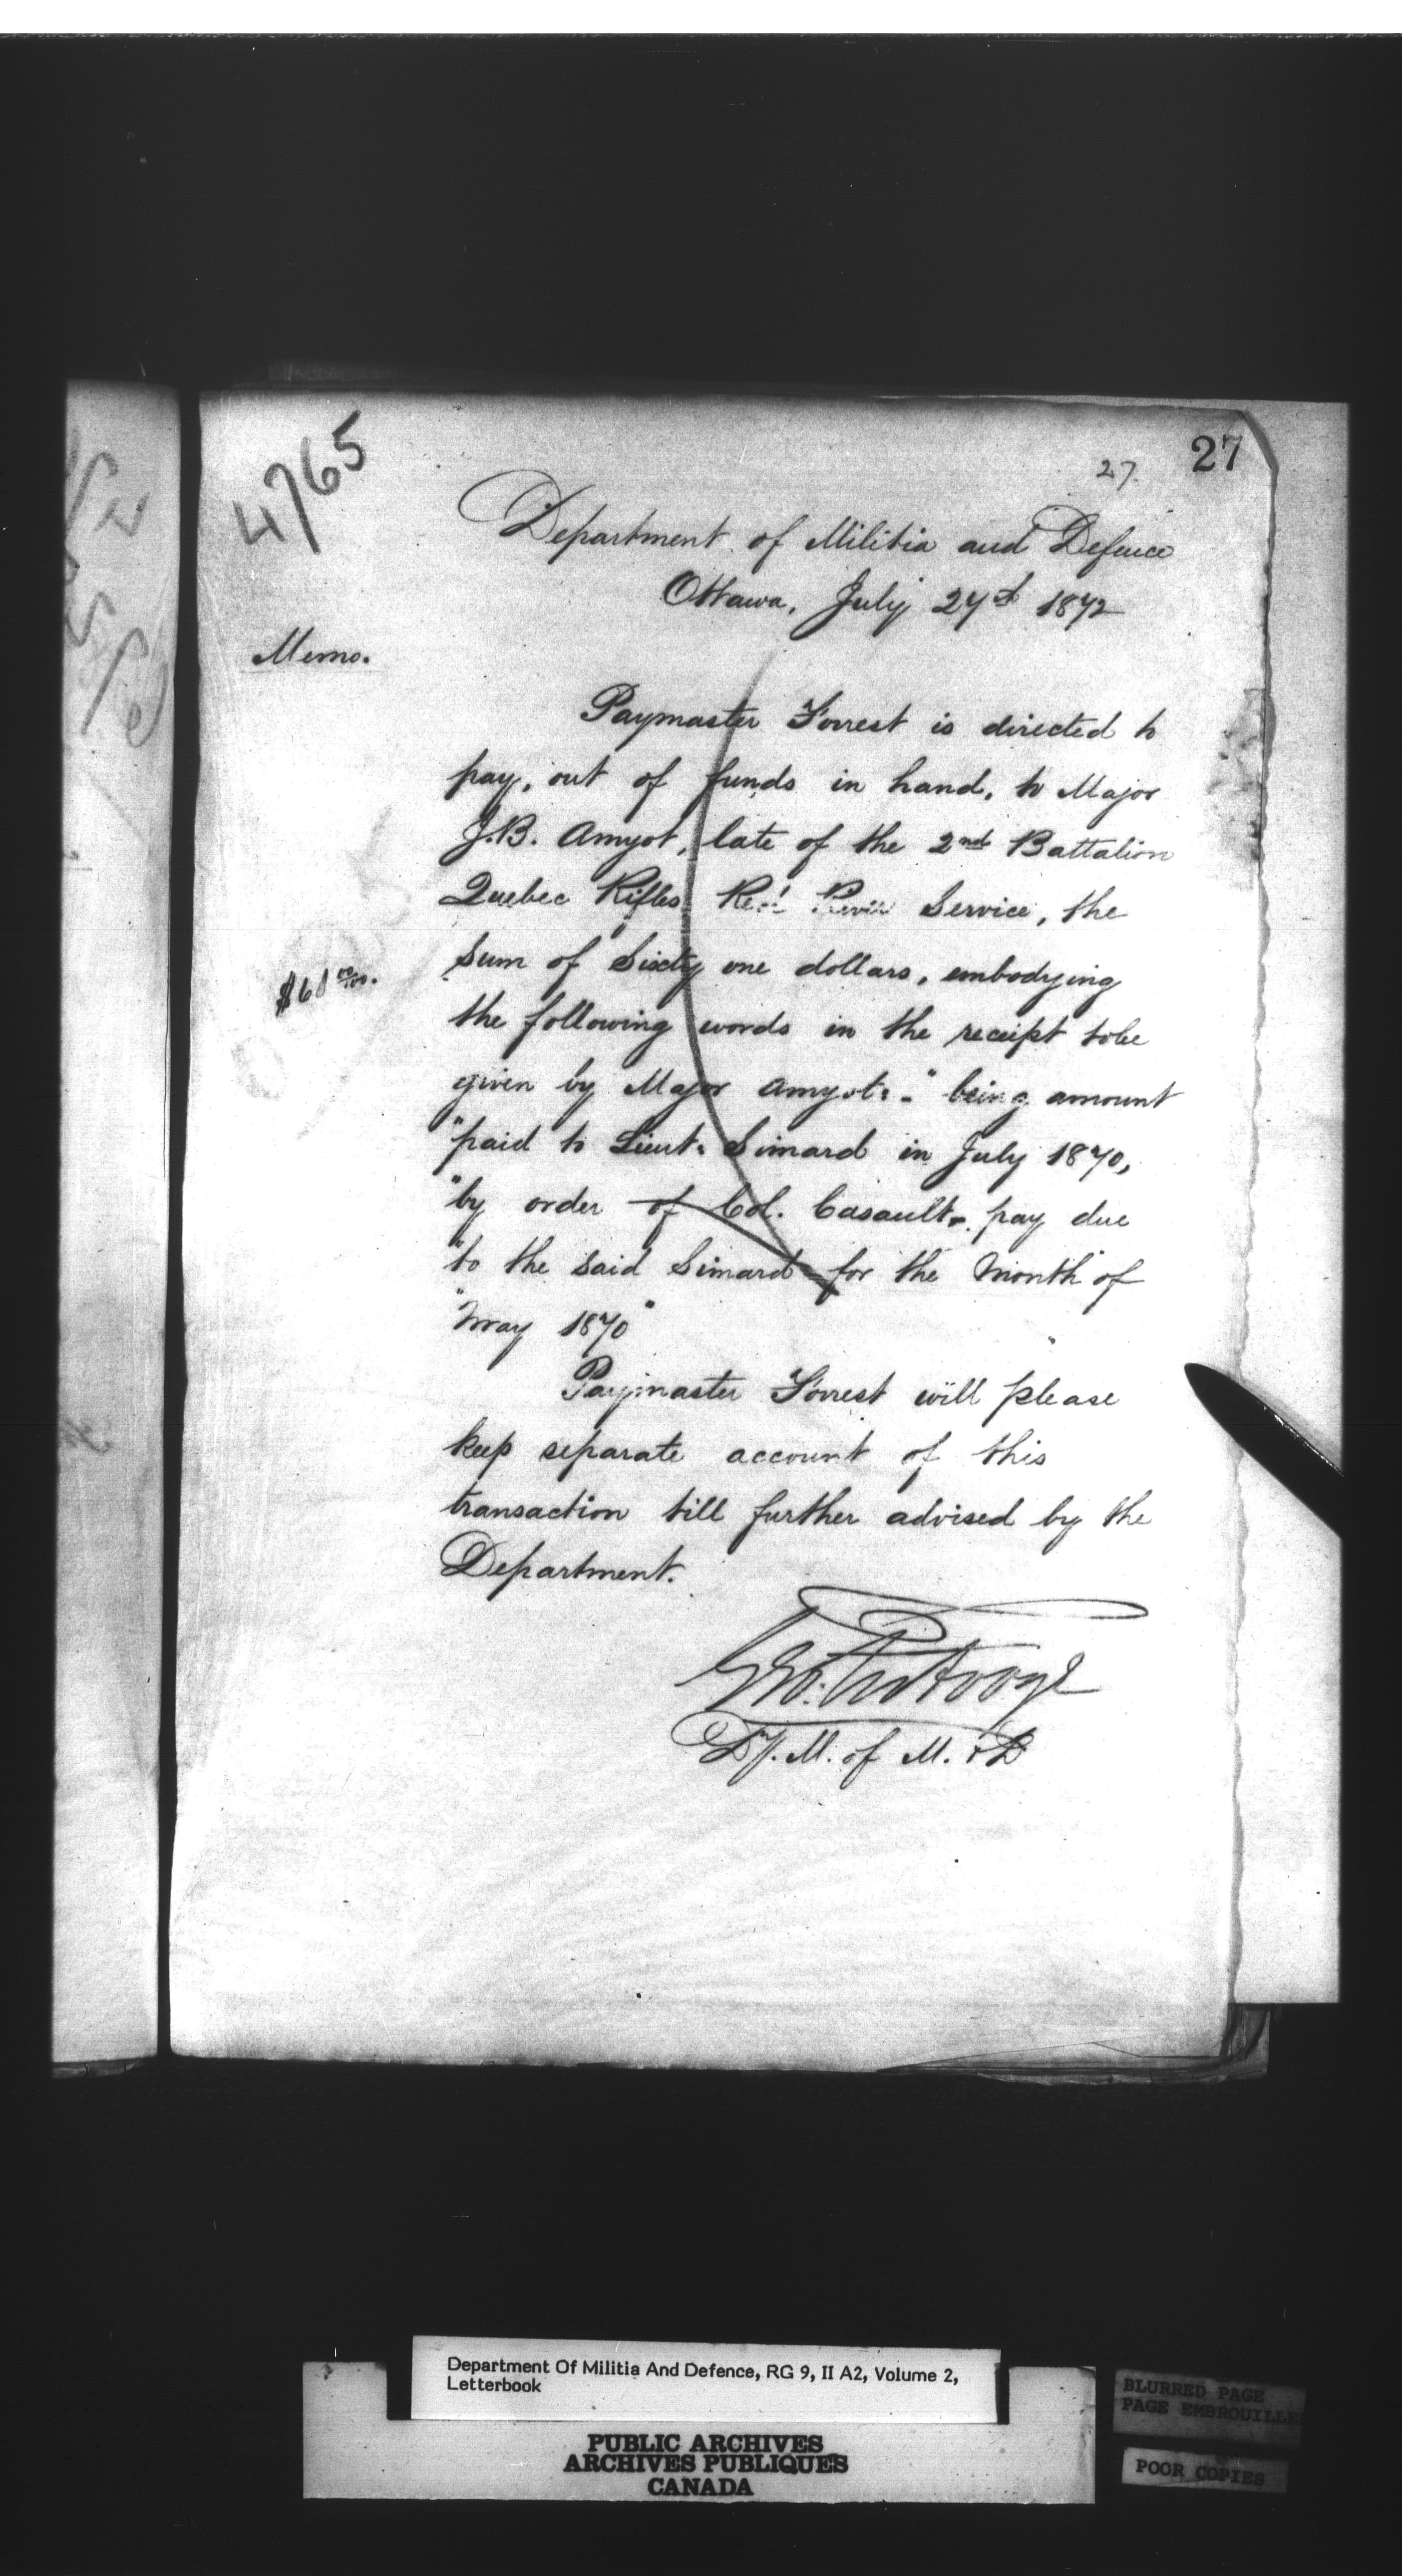 4765
27
27.
Department of Militia and Defence
Ottawa, July 24th 1872
Memo.
Paymaster Forrest is directed to
pay, out of funds in hand, to Major
J.B. Amyot, late of the 2nd Battalion
Quebec Rifles Red River Service, the
$61 00/100.
sum of Sixty one dollars, embodying
the following words in the receipt to be
given by Major Amyot:- "being amount
"paid to Lieut. Simard in July 1870,
"by order of Col. Casault, pay due
"to the said Simard for the Month of
"May 1870"
Paymaster Forrest will please
keep separate account of this
transaction till further advised by the
Department.
Geo. Futvoye
Dy. M. of M. & D
Department Of Militia And Defence, RG 9, II A2, Volume 2,
Letterbook
PUBLIC ARCHIVES
ARCHIVES PUBLIQUES
CANADA
BLURRED PAGE
PAGE EMBROUILLE
POOR COPIES